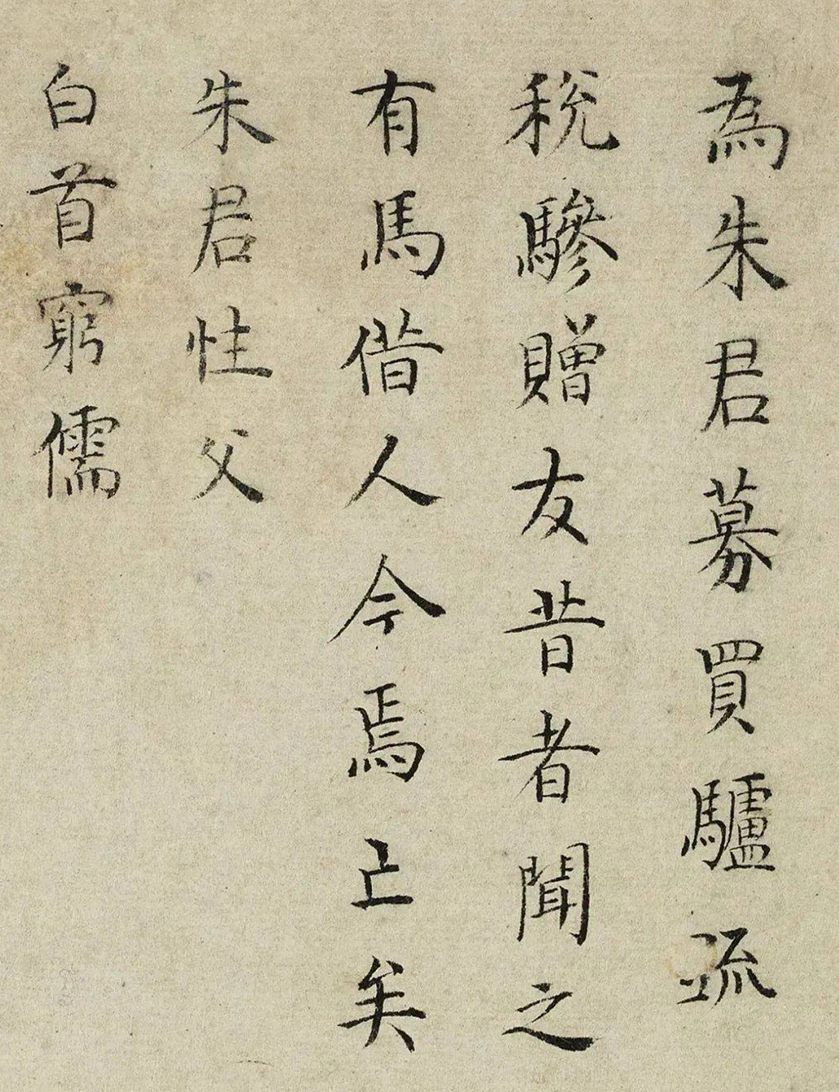 為朱君募買驢疏
稅驂贈友昔者聞之
有馬借人今焉亡矣
朱君性父
白首窮儒